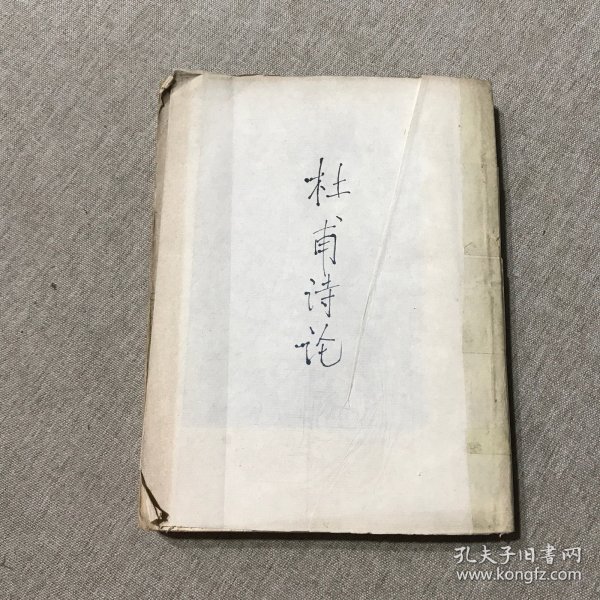 杜甫诗论
孔夫子旧书网
www.kongfz.com